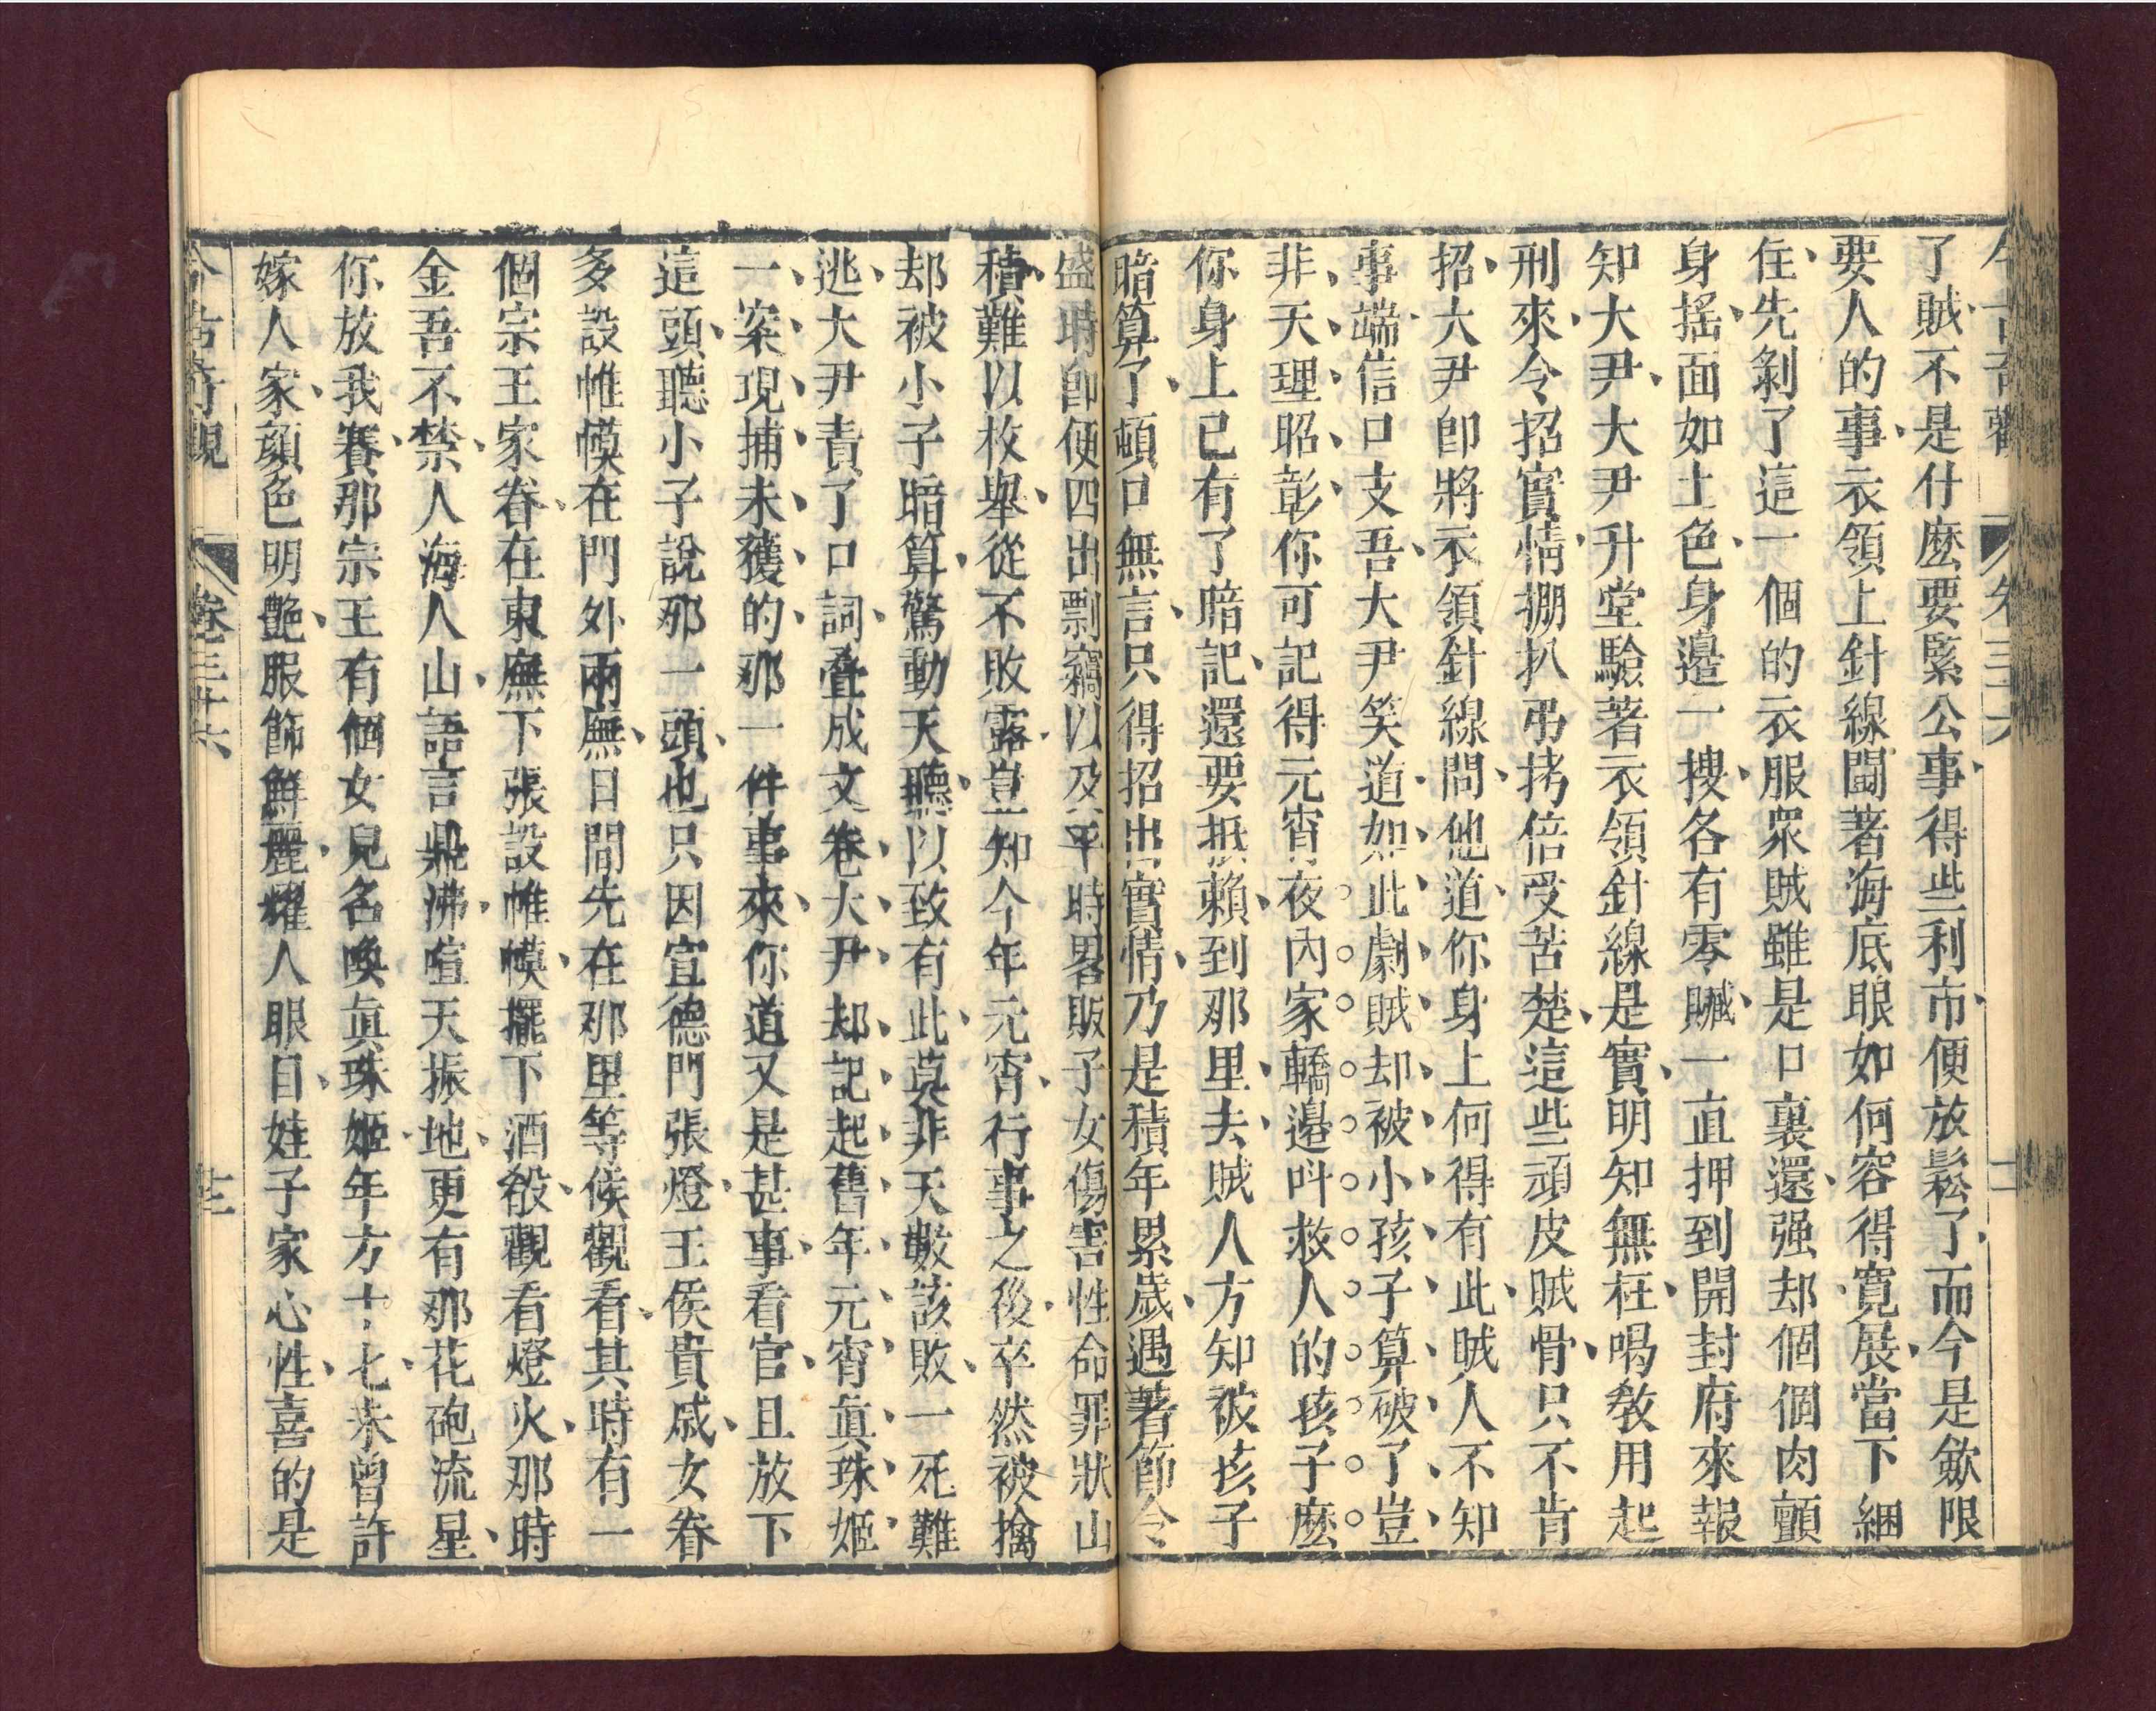 了賊不是什麼要緊公事得些利市便放鬆了而今是欽限
要人的事衣領上針線閫著海底眼如何容得寬展當下綑
住先剝了這一個的衣服眾賊雖是口裏還强却個個肉顫
身搖面如土色身邊一搜各有零贓一直押到開封府來報
知大尹大尹升堂驗著衣領針線是實明知無枉喝教用起
刑來令招實情掤扒吊拷倍受苦楚這些頑皮賊骨只不肯
招大尹卽將衣領針線問他道你身上何得有此賊人不知
事端信口支吾大尹笑道如此劇賊却被小孩子算破了豈
非天理昭彰你可記得元宵夜內家轎邉叫救人的孩子麽
你身上已有了暗記還要抵賴到那里去賊人方知被孩子
暗算了頓口無言只得招出實情乃是積年累歲遇著節令
盛時卽便四出剽竊以及平時畧販子女傷害性命罪狀山
積難以枚舉從不敗露豈知今年元宵行事之後卒然被擒
却被小子暗算驚動天聽以致有此莫非天數該敗一死難
逃大尹責了口詞叠成文卷大尹却記起舊年元宵眞珠姬
一案現捕未獲的那一件事來你道又是甚事看官且放下
這頭聽小子說那一頭也只因宣德門張燈王侯貴戚女眷
多設帷幙在門外兩廡日間先在那里等候觀看其時有一
個宗王家眷在東廡下張設帷幙擺下酒殽觀看燈火那時
金吾不禁人海人山語言鼎沸喧天振地更有那花砲流星
你放我賽那宗王有個女兒名喚眞珠姬年方十七未曾許
嫁人家顔色明艷服飾鮮麗耀人眼目姪子家心性喜的是
今古奇觀 卷三十六 十三